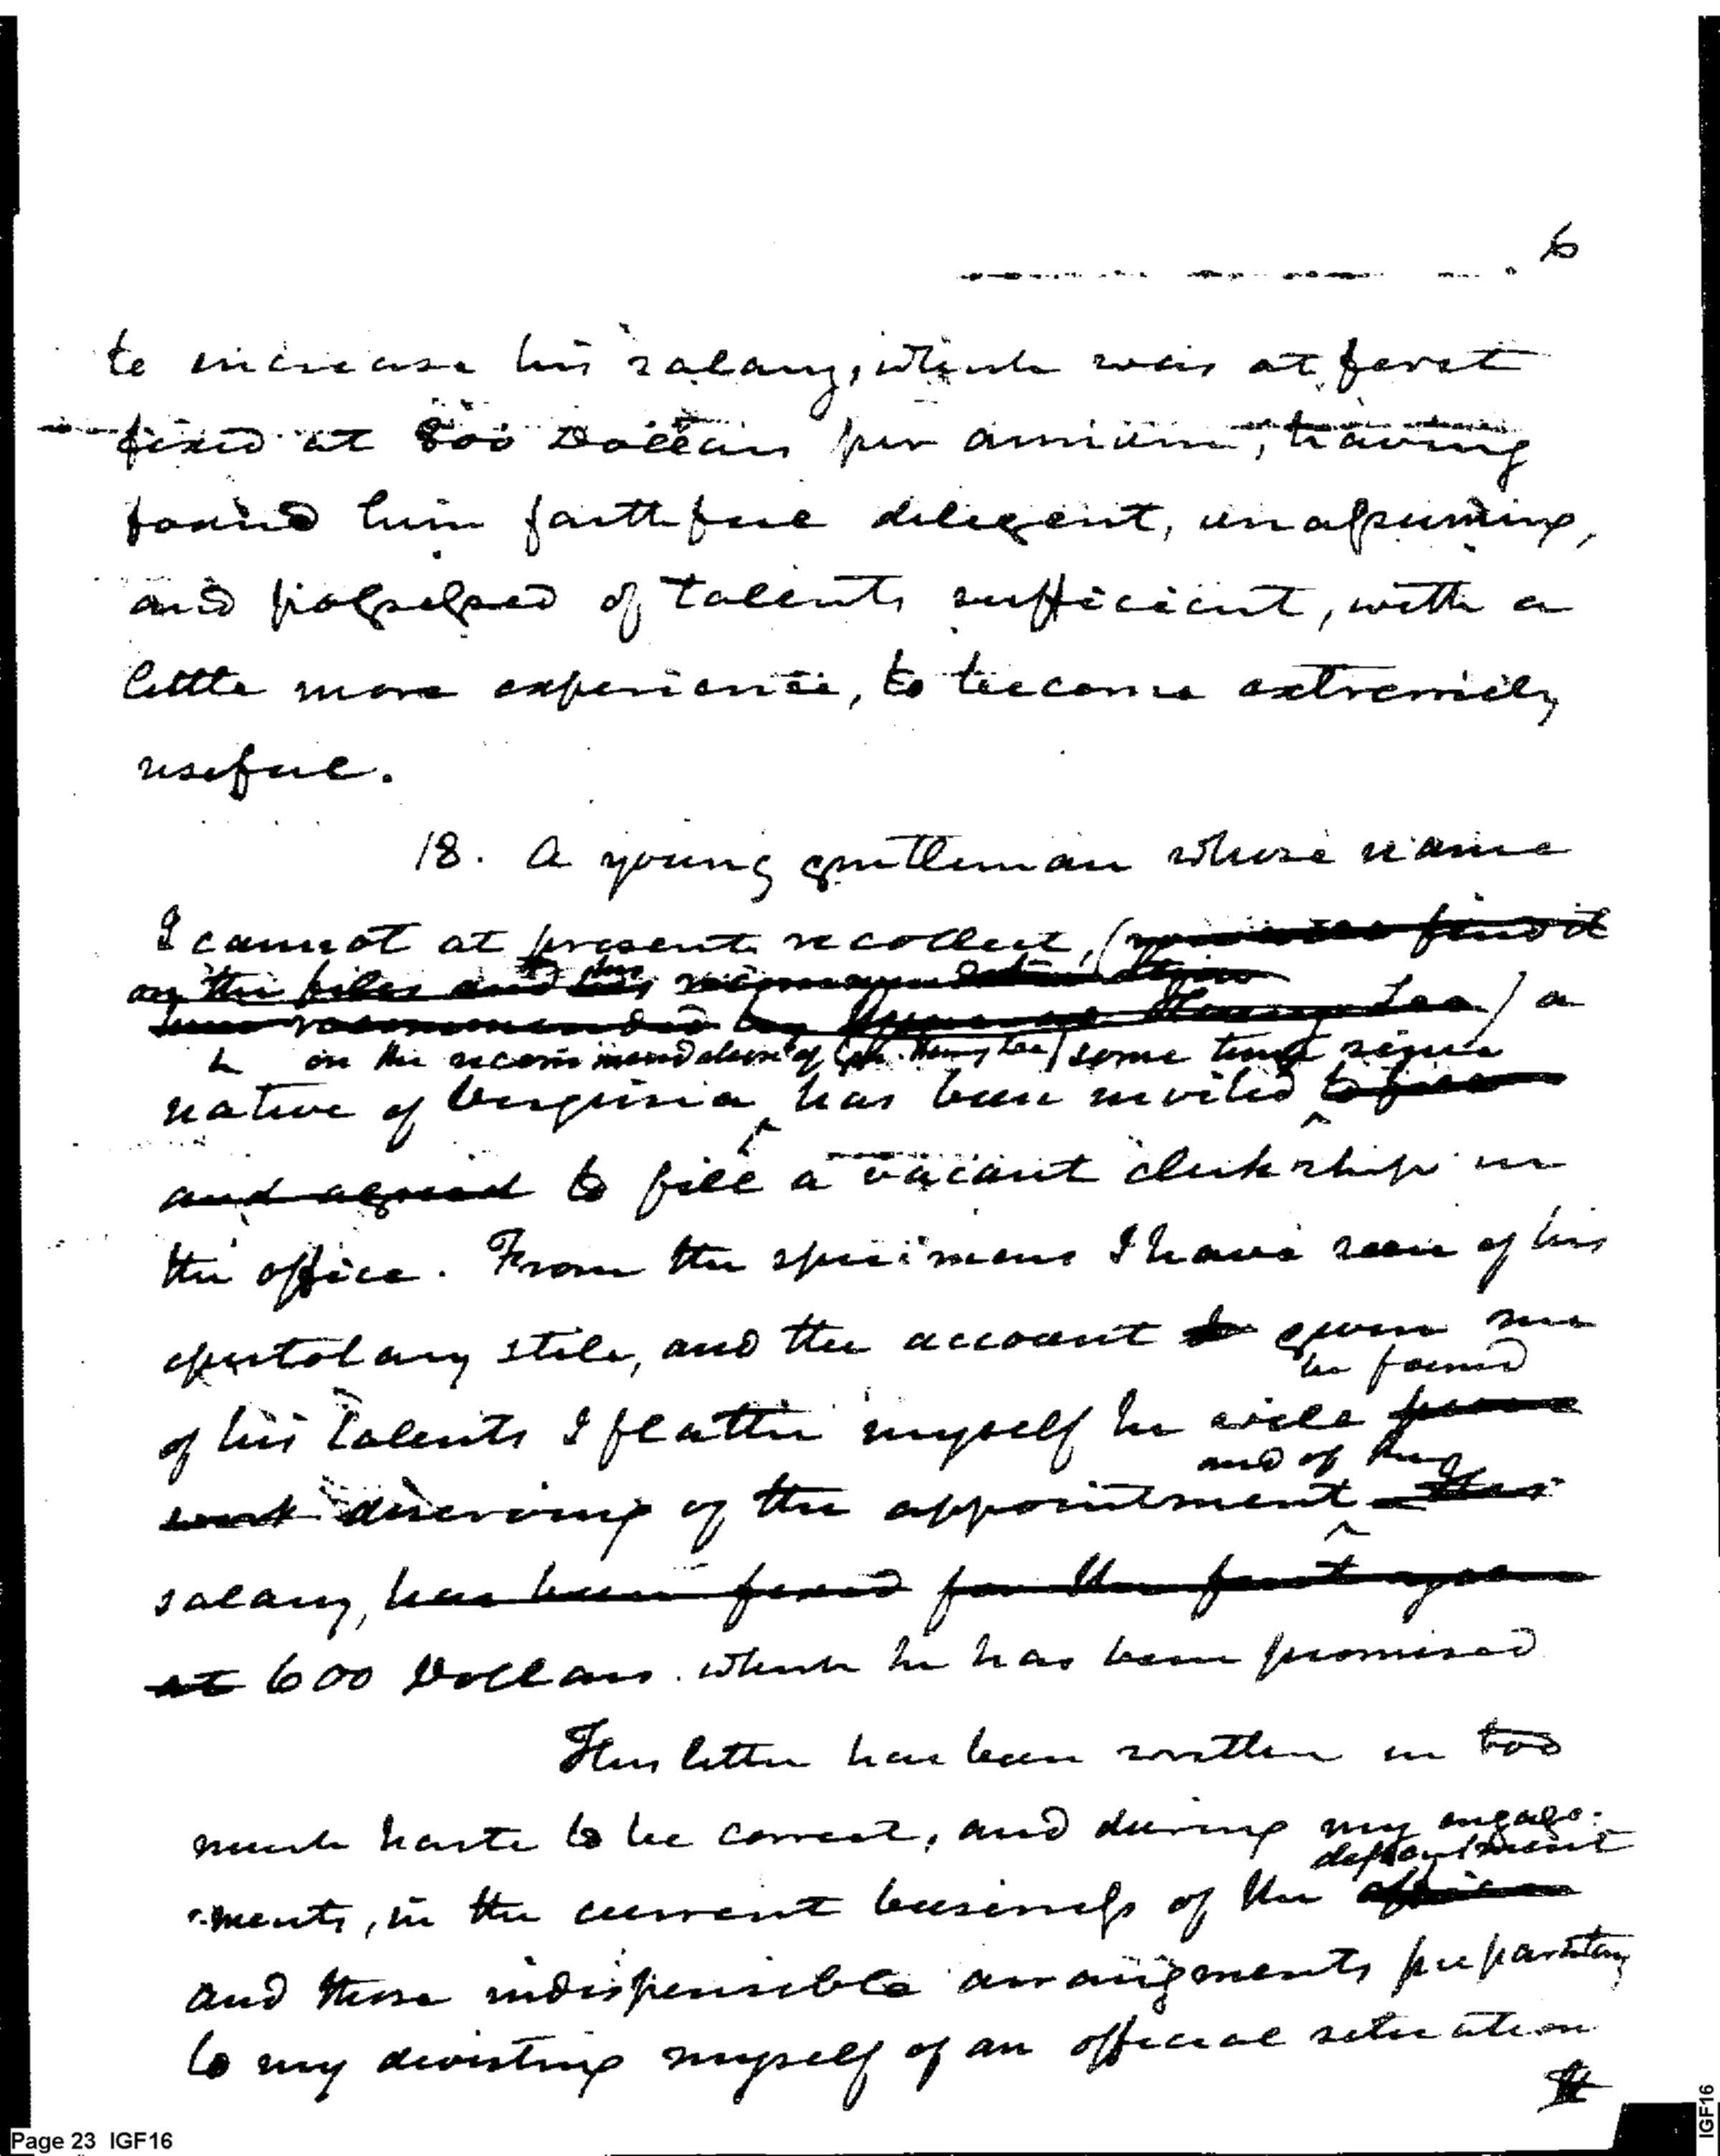 6
to increase his salary, which was at first
fixed at 800 Dollars per annum, having
found him faithful diligent, unassuming,
and possessed of talents sufficient, with a
little more experience, to become extremely
useful.
18. A young gentleman whose name
I cannot at present recollect, (you will find it
on the files and his recommendation
been recommended by Henry Lee) a
on the recommendation of Henry Lee) some time since
native of Virginia, has been invited to
and agreed to fill a vacant clerkship in
the office. From the specimens I have seen of his
epistolary stile, and the account given me
be found
of his talents I flatter myself he will prove
and of the
deserving of the appointment His
salary, has been fixed for the first year
at 600 Dollars. which he has been promised
This letter has been written in too
much haste to be correct, and during my engage-
department
-ments, in the current business of the office
and those indispensible arrangments preparatory
to my divisting myself of an official situation
Page 23 IGF16
IGF16